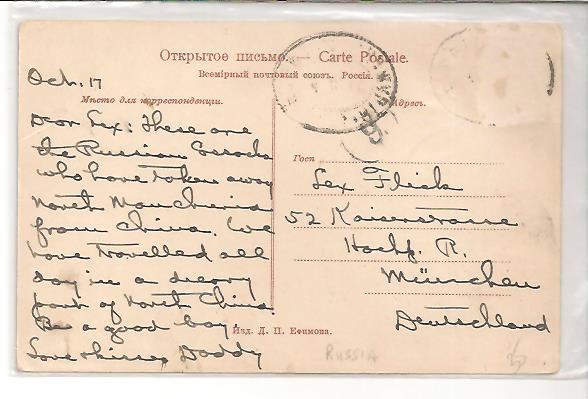 Открытое письмо. — Carte Postale.
Всемірный почтовый союзъ. Россія.
Oct. 17
Мѣсто для корреспонденціи.
Адресъ.
Dear Lex: These are
the Russian Cossacks
who have taken away
North Manchuria
from China. We
have travelled all
day in a dreary
part of North China.
Be a good boy.
Love & kisses Daddy
Госп
Lex Flick
52 Kaiserstrasse
Hochp. R.
München
Deutschland
Изд. Д. П. Ефимова.
RUSSIA